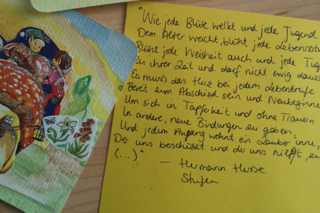 "Wie jede Blüte welkt und jede Jugend
Dem Alter weicht, blüht jede Lebensstufe
Blüht jede Weisheit auch und jede Tugend
Zu ihrer Zeit und darf nicht ewig dauern
Es muss das Herz bei jedem Lebensrufe
Bereit zum Abschied sein und Neubeginne
Um sich in Tapferkeit und ohne Trauern
In andere, neue Bindungen zu geben.
Und jedem Anfang wohnt ein Zauber inne,
Der uns beschützt und der uns hilft, zu
(...)"
— Hermann Hesse
Stufen